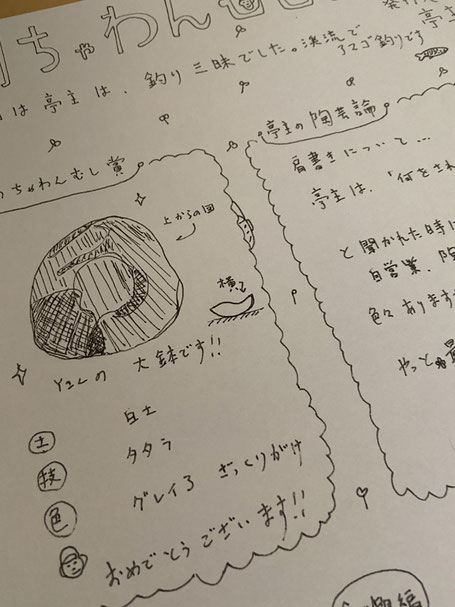 ちゃわん
亭主は、釣り三昧でした。渓流で
アマゴ釣りです
亭主
ちゃわんむし賞
上からの図
横→
大鉢です!!
土 白土
技 タタラ
色 グレイ3 ざっくりがけ
おめでとうございます!!
亭主の陶芸論
肩書きについて…
亭主は、「何をされ
と聞かれた時に
自営業、陶
色々あります
やっと、最
編